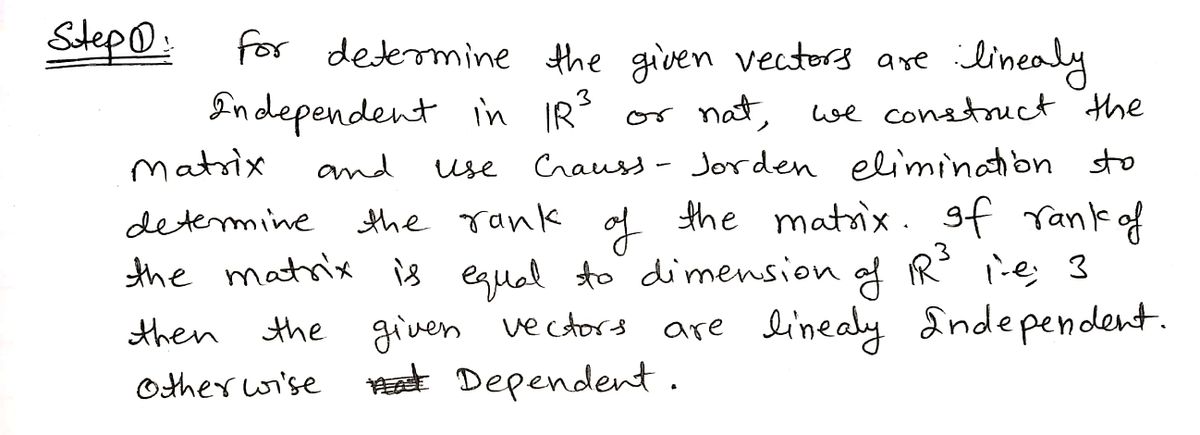 Step ①: For determine the given vectors are linealy
Independent in IR³ or nat, we construct the
matrix and use Gauss - Jorden elimination to
determine the rank of the matrix. If rank of
the matrix is equal to dimension of IR³ i.e; 3
then the given vectors are linealy Independent.
Otherwise Dependent.